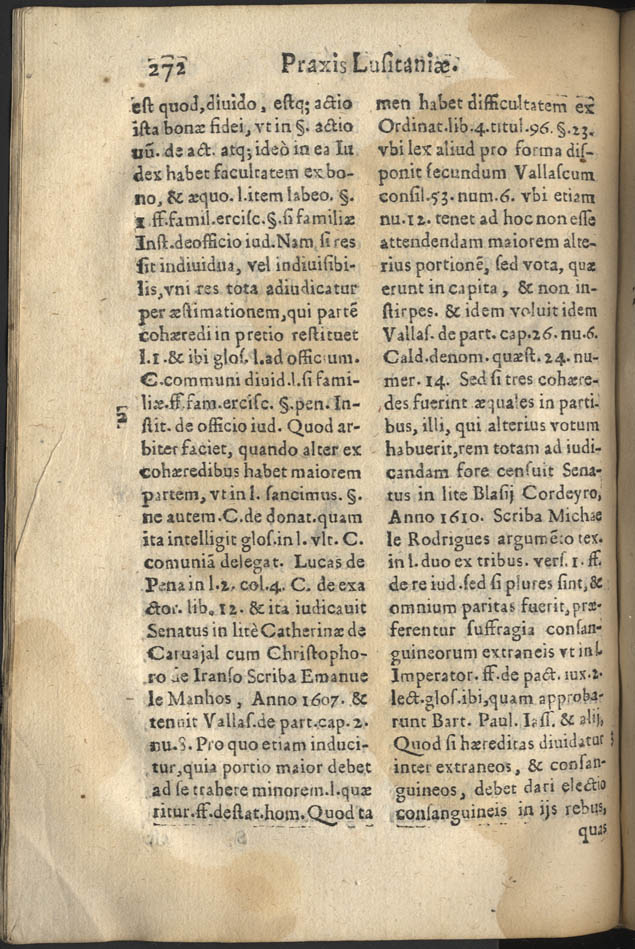 272
Praxis Lusitaniæ.
est quod, diuido, estq; actio
ista bonæ fidei, vt in §. actio
nū. de act. atq; ideò in ea Iu
dex habet facultatem ex bo-
no, & æquo. l. item labeo. §.
1. ff. famil. ercisc. §. si familiæ
Inst. de officio iud. Nam si res
sit indiuidua, vel indiuisibi-
lis, vni res tota adiudicatur
per æstimationem, qui partē
cohæredi in pretio restituet
l. 1. & ibi glos. l. ad officium.
C. communi diuid. l. si fami-
liæ. ff. fam. ercisc. §. pen. In-
stit. de officio iud. Quod ar-
biter faciet, quando alter ex
cohæredibus habet maiorem
partem, vt in l. sancimus. §.
ne autem. C. de donat. quam
ita intelligit glos. in l. vlt. C.
comuniā delegat. Lucas de
Pena in l. 2. col. 4. C. de exa
ctor. lib. 12. & ita iudicauit
Senatus in litè Catherinæ de
Caruajal cum Christopho-
ro de Iranso Scriba Emanue
le Manhos, Anno 1607. &
tenuit Vallas. de part. cap. 2.
nu. 8. Pro quo etiam induci-
tur, quia portio maior debet
ad se trahere minorem. l. quæ
ritur. ff. de stat. hom. Quod ta
men habet difficultatem ex
Ordinat. lib. 4. titul. 96. §. 23.
vbi lex aliud pro forma dis-
ponit secundum Vallascum
consil. 53. num. 6. vbi etiam
nu. 12. tenet ad hoc non esse
attendendam maiorem alte-
rius portionē, sed vota, quæ
erunt in capita, & non in-
stirpes. & idem voluit idem
Vallas. de part. cap. 26. nu. 6.
Cald. denom. quæst. 24. nu-
mer. 14. Sed si tres cohære-
des fuerint æquales in parti-
bus, illi, qui alterius votum
habuerit, rem totam ad iudi-
candam fore censuit Sena-
tus in lite Blasij Cordeyro,
Anno 1610. Scriba Michae
le Rodrigues argumēto tex.
in l. duo ex tribus. vers. 1. ff.
de re iud. sed si plures sint, &
omnium paritas fuerit, præ-
ferentur suffragia consan-
guineorum extraneis vt in l.
Imperator. ff. de pact. iux. 2.
lect. glos. ibi, quam approba-
runt Bart. Paul. Iass. & alij,
Quod si hæreditas diuidatur
inter extraneos, & consan-
guineos, debet dari electio
consanguineis in ijs rebus,
quas